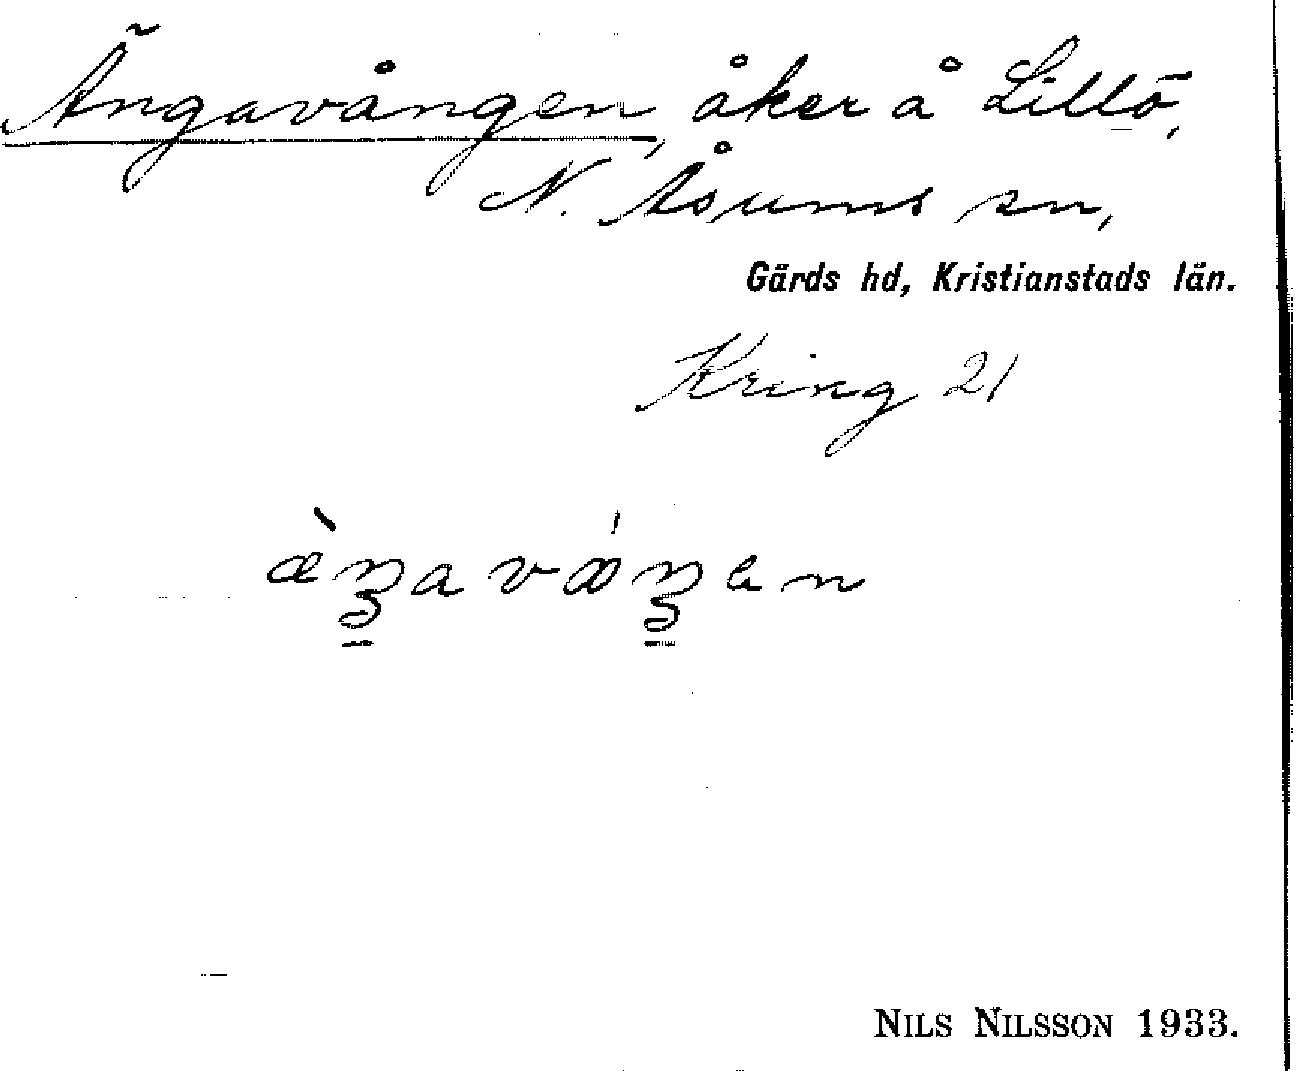 Ängavången, åker å Lillö,
N. Åsums sn,
Gärds hd, Kristianstads län.
Kring 21
NILS NILSSON 1933.